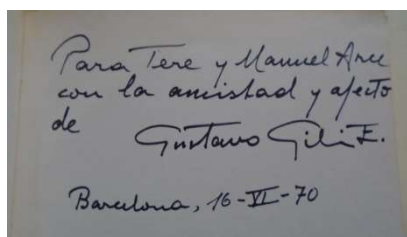 Para Tere y Manuel Arce
con la amistad y afecto
de Gustavo Gili E.
Barcelona, 16-VI-70